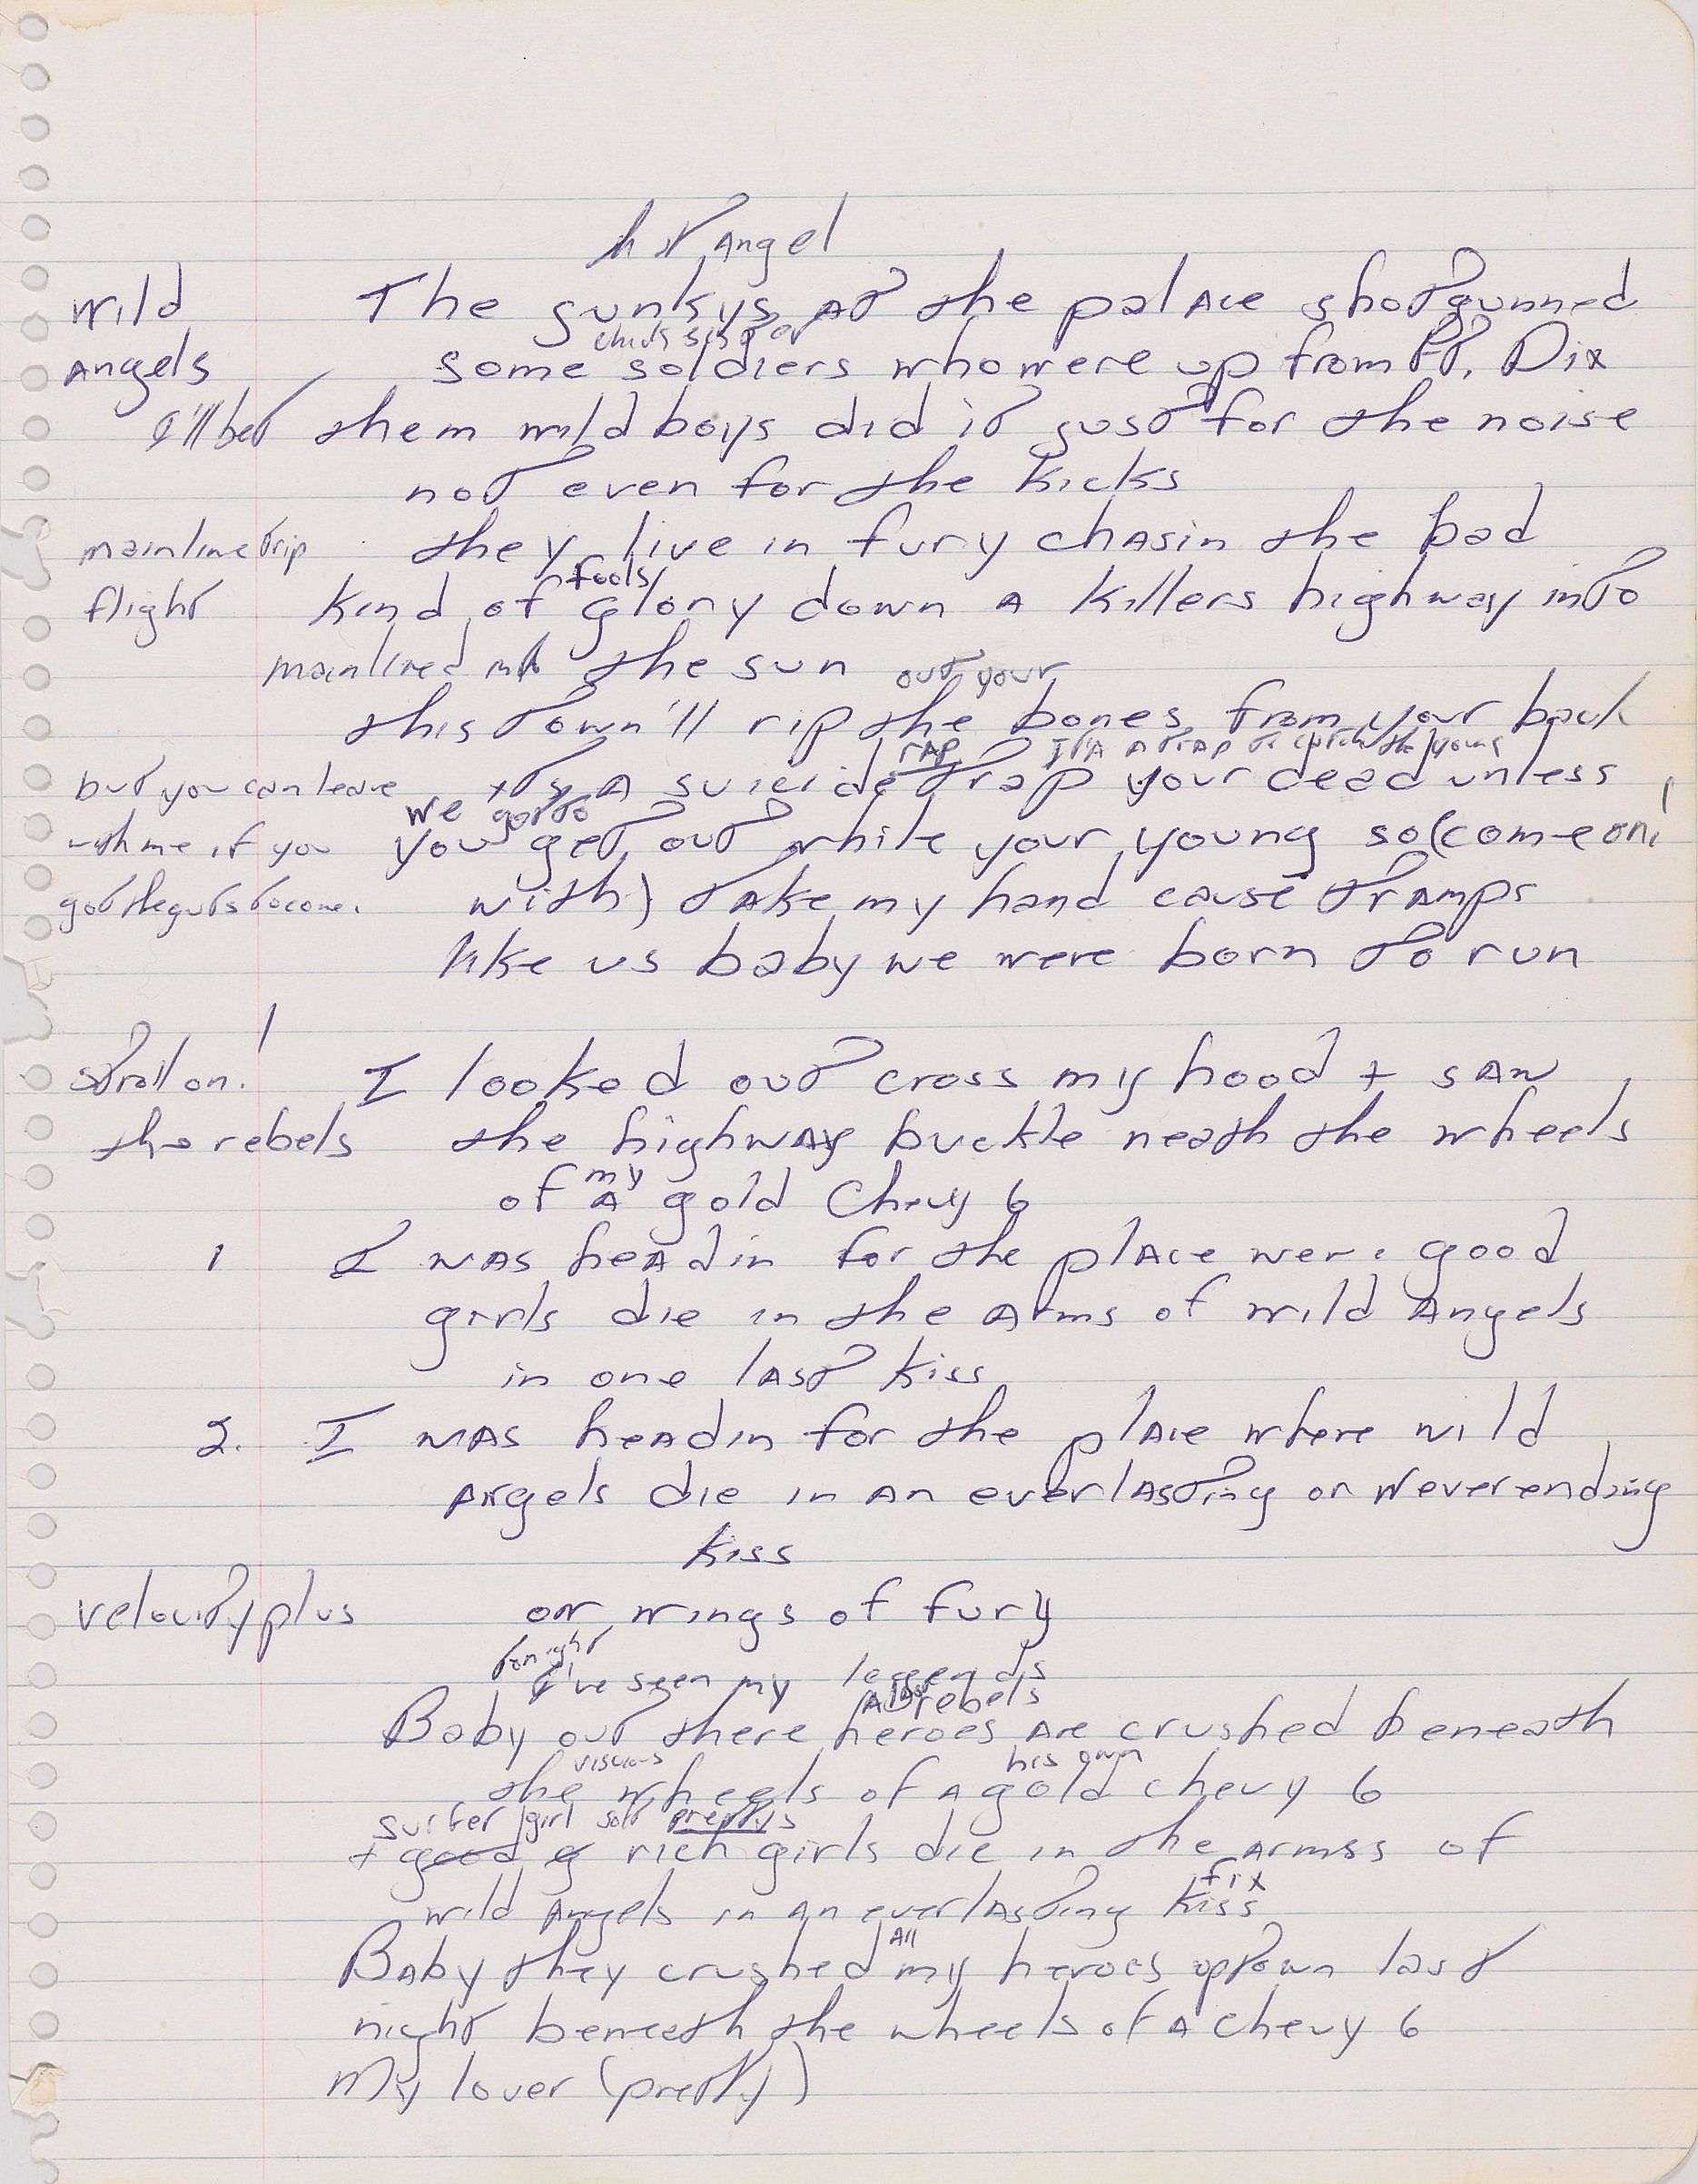 Angel
Wild The junkys at the palace shotgunned
Angels some soldiers who were up from Ft. Dix
I'll bet them wild boys did it just for the noise
not even for the kicks
mainline trip they live in fury chasin the bad
fools
flight kind of glory down a killers highway into
mainlined into the sun out your
this town'll rip the bones from your back
rap its a trap to catch the young
but you can leave its a suicide trap your dead unless
we got to
with me if you you get out while your young so (come on
got the guts to come. with) take my hand cause tramps
like us baby we were born to run
stroll on. I looked out cross my hood + saw
the rebels the highway buckle neath the wheels
my
of a gold Chevy 6
1 I was headin for the place were good
girls die in the arms of wild angels
in one last kiss
2. I was headin for the place where wild
angels die in an everlasting or neverending
kiss
velocity plus on wings of fury
tonight
I've seen my legends
rebels
Baby out there heroes are crushed beneath
viscious his own
the wheels of a gold chevy 6
surfer girl prettys
+ good g rich girls die in the armss of
fix
wild angels in an everlasting kiss
All
Baby they crushed my heroes uptown last
night beneath the wheels of a chevy 6
My lover (pretty)